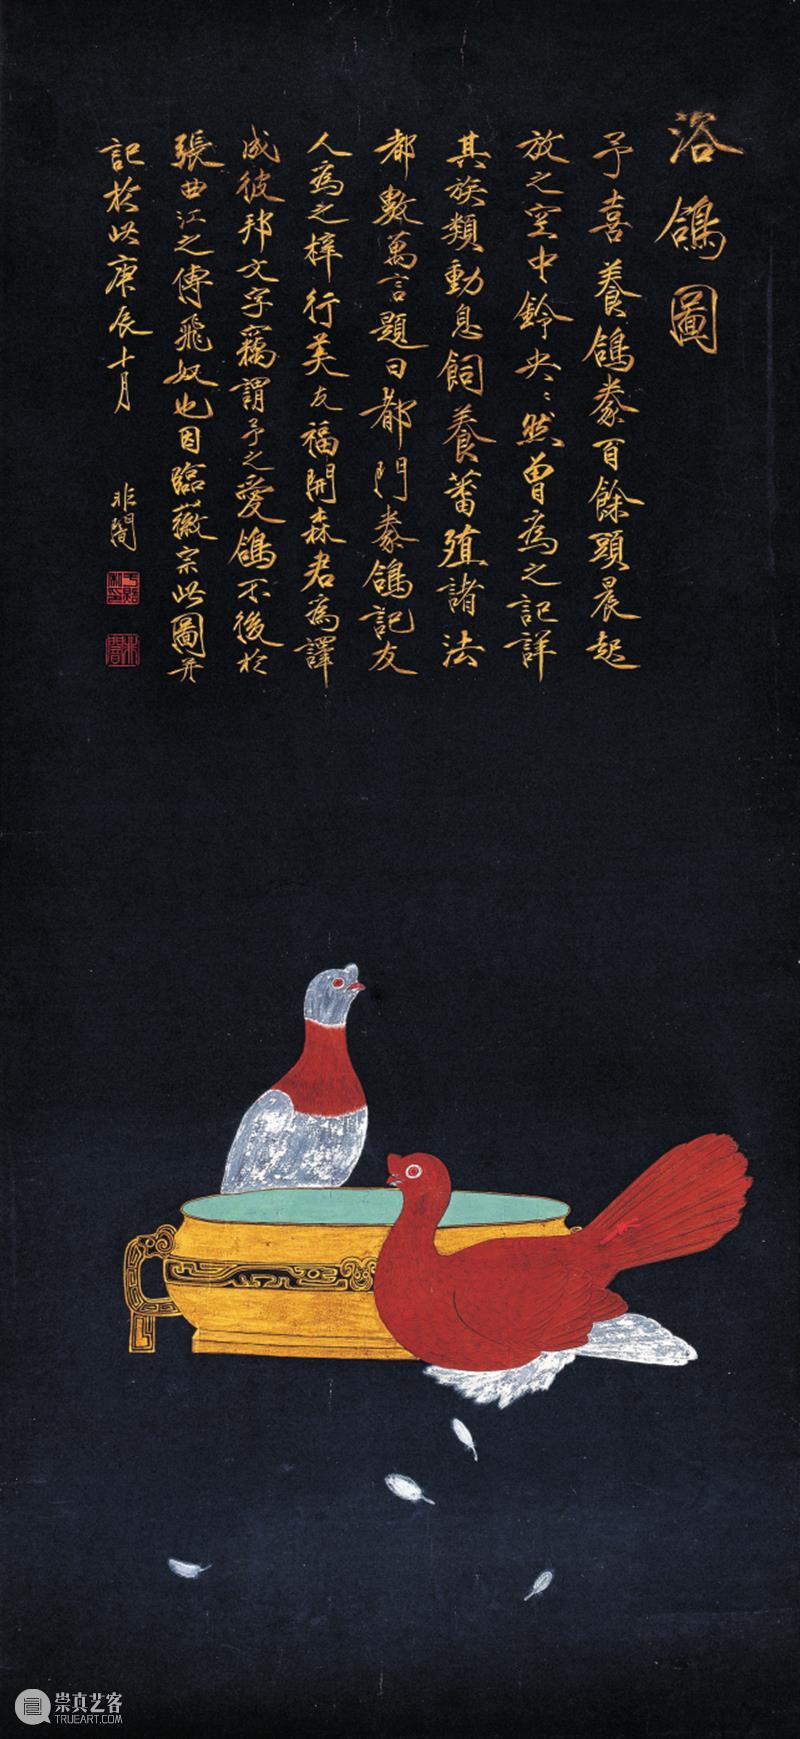 浴鴿圖
予喜養鴿豢百餘頭晨起
放之空中鈴央央然曾為之記詳
其族類動息飼養蕃殖諸法
都數萬言題曰都門豢鴿記友
人為之梓行美友福開森君為譯
成彼邦文字竊謂予之愛鴿不後於
張曲江之傳飛奴也因臨徽宗此圖并
記於此庚辰十月
非闇
崇真艺客
TRUEART.COM